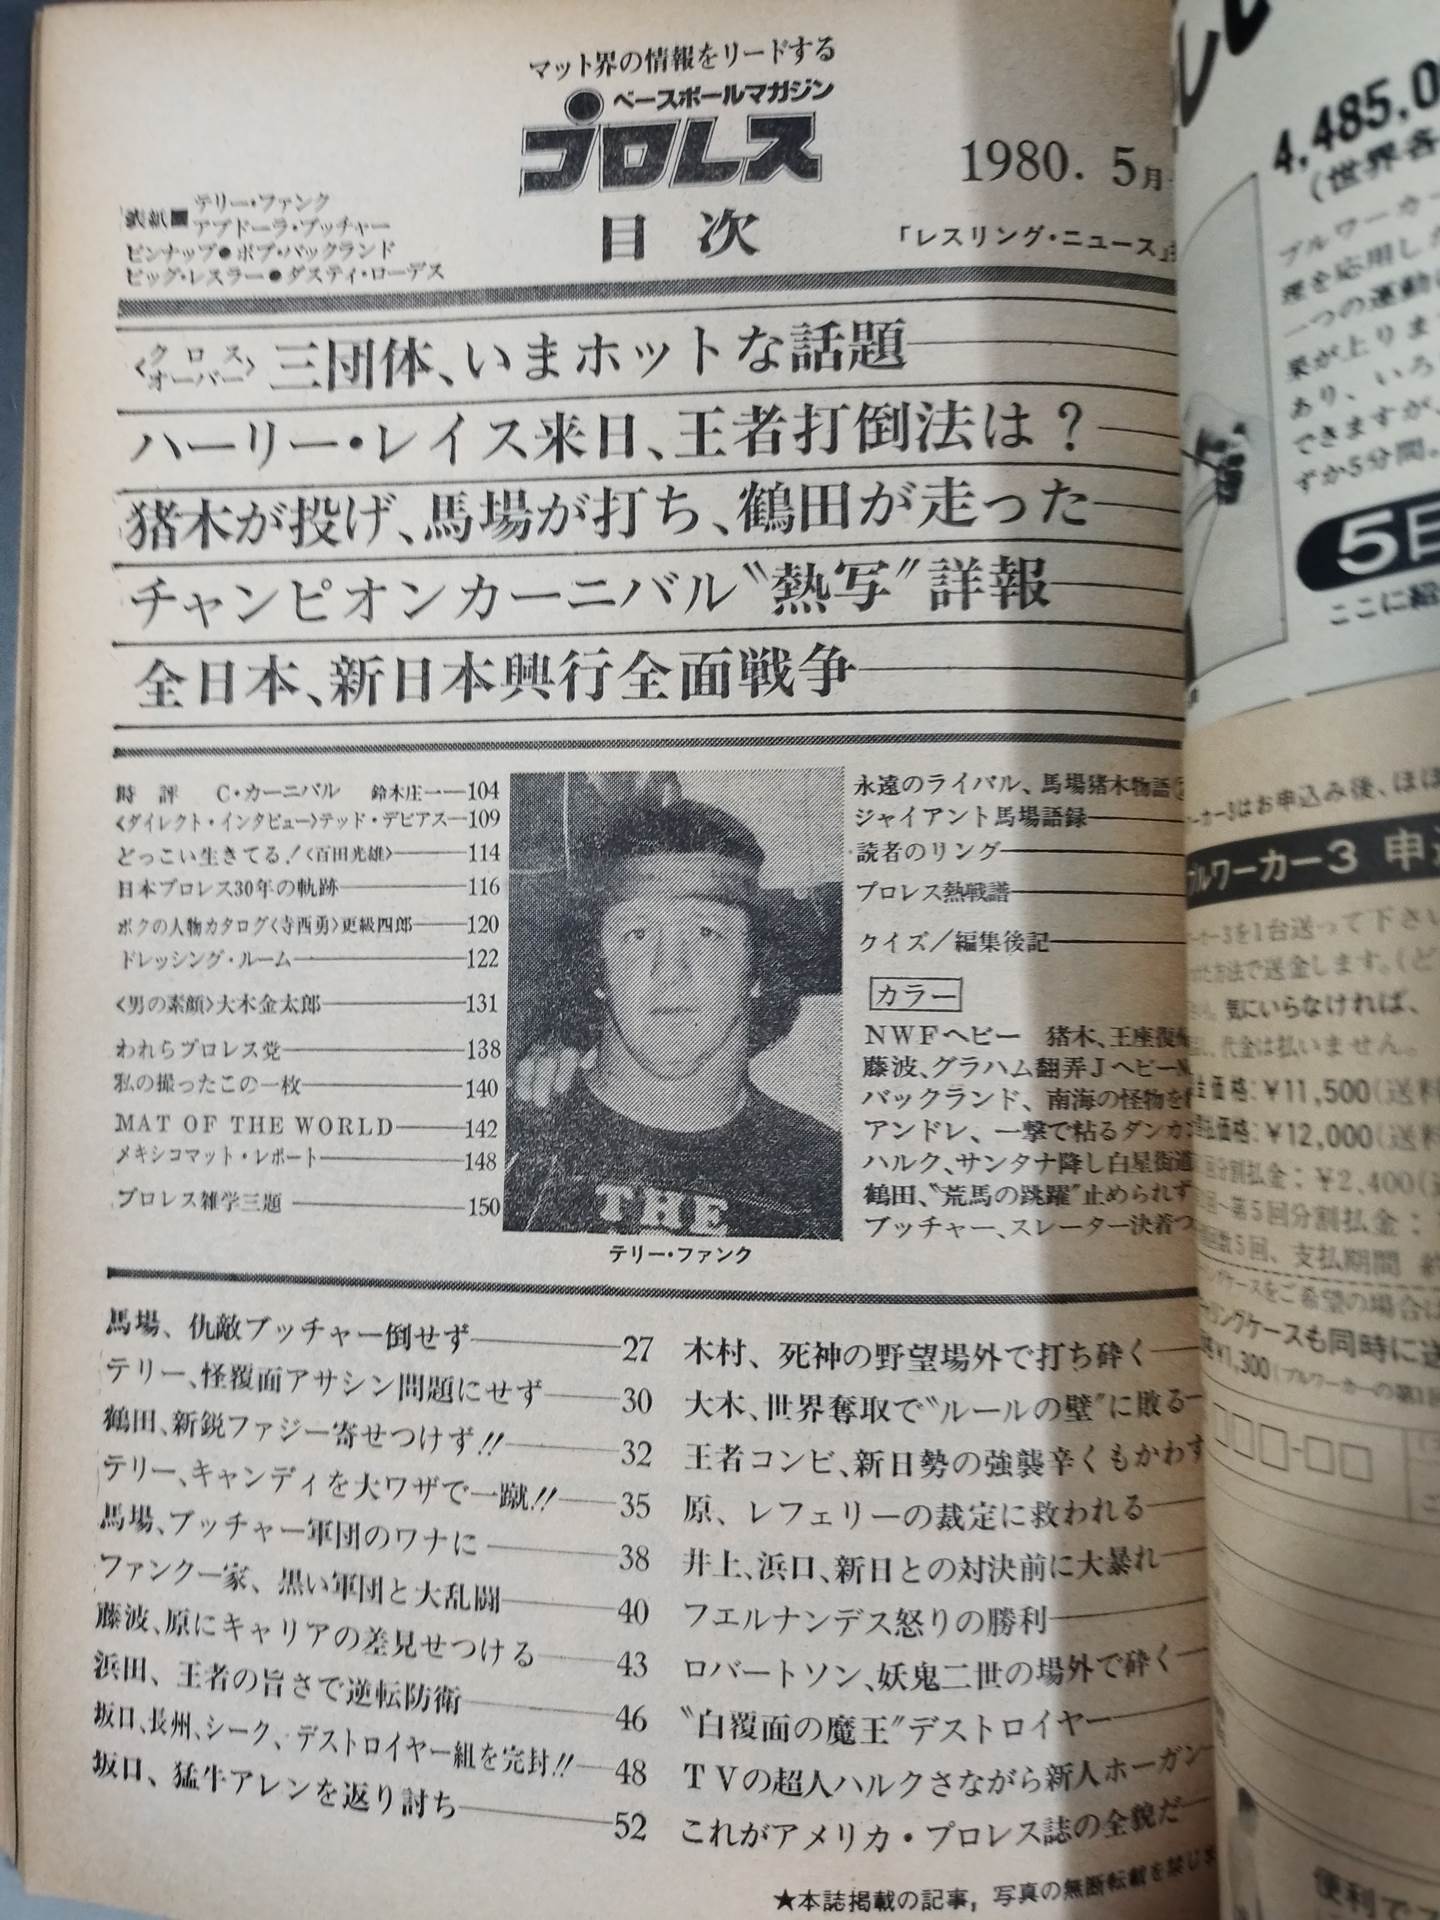 マット界の情報をリードする
ベースボールマガジン
プロレス
1980. 5月
目次
「レスリング・ニュース」
表紙■テリー・ファンク
アブドーラ・ブッチャー
ピンナップ●ボブ・バックランド
ビッグ・レスラー●ダスティ・ローデス
〈クロスオーバー〉三団体、いまホットな話題
ハーリー・レイス来日、王者打倒法は?
猪木が投げ、馬場が打ち、鶴田が走った
チャンピオンカーニバル〝熱写〟詳報
全日本、新日本興行全面戦争
時評 C・カーニバル 鈴木庄一—104
〈ダイレクト・インタビュー〉テッド・デビアス—109
どっこい生きてる!〈百田光雄〉—114
日本プロレス30年の軌跡—116
ボクの人物カタログ〈寺西勇〉更級四郎—120
ドレッシング・ルーム—122
〈男の素顔〉大木金太郎—131
われらプロレス党—138
私の撮ったこの一枚—140
MAT OF THE WORLD—142
メキシコマット・レポート—148
プロレス雑学三題—150
THE
テリー・ファンク
永遠のライバル、馬場猪木物語
ジャイアント馬場語録
読者のリング
プロレス熱戦譜
クイズ/編集後記
カラー
NWFヘビー 猪木、王座復
藤波、グラハム翻弄Jヘビー
バックランド、南海の怪物を
アンドレ、一撃で粘るダンカン
ハルク、サンタナ降し白星街道
鶴田、〝荒馬の跳躍〟止められず
ブッチャー、スレーター決着つ
馬場、仇敵ブッチャー倒せず—27
テリー、怪覆面アサシン問題にせず—30
鶴田、新鋭ファジー寄せつけず!!—32
テリー、キャンディを大ワザで一蹴!!—35
馬場、ブッチャー軍団のワナに—38
ファンク一家、黒い軍団と大乱闘—40
藤波、原にキャリアの差見せつける—43
浜田、王者の旨さで逆転防衛—46
坂口、長州、シーク、デストロイヤー組を完封!!—48
坂口、猛牛アレンを返り討ち—52
木村、死神の野望場外で打ち砕く
大木、世界奪取で〝ルールの壁〟に敗る
王者コンビ、新日勢の強襲辛くもかわす
原、レフェリーの裁定に救われる
井上、浜口、新日との対決前に大暴れ
フエルナンデス怒りの勝利
ロバートソン、妖鬼二世の場外で砕く
〝白覆面の魔王〟デストロイヤー
TVの超人ハルクさながら新人ホーガン
これがアメリカ・プロレス誌の全貌だ
★本誌掲載の記事,写真の無断転載を禁じ
4,485,0
(世界各
ブルワーカー
理を応用した
一つの運動
果が上りま
あり、いろ
できますが、
ずか5分間。
5日
ここに紹
ーカー3はお申込み後、ほぼ
ブルワーカー3 申込
ーカー3を1台送って下さい
た方法で送金します。(ど
気にいらなければ、
代金は払いません。
価格:¥11,500(送料
価格:¥12,000(送料
回分割払金:¥2,400(
回~第5回分割払金:
回数5回、支払期間 約
ングケースをご希望の場合は
リングケースも同時に送
¥1,300(ブルワーカーの第1回
便利で